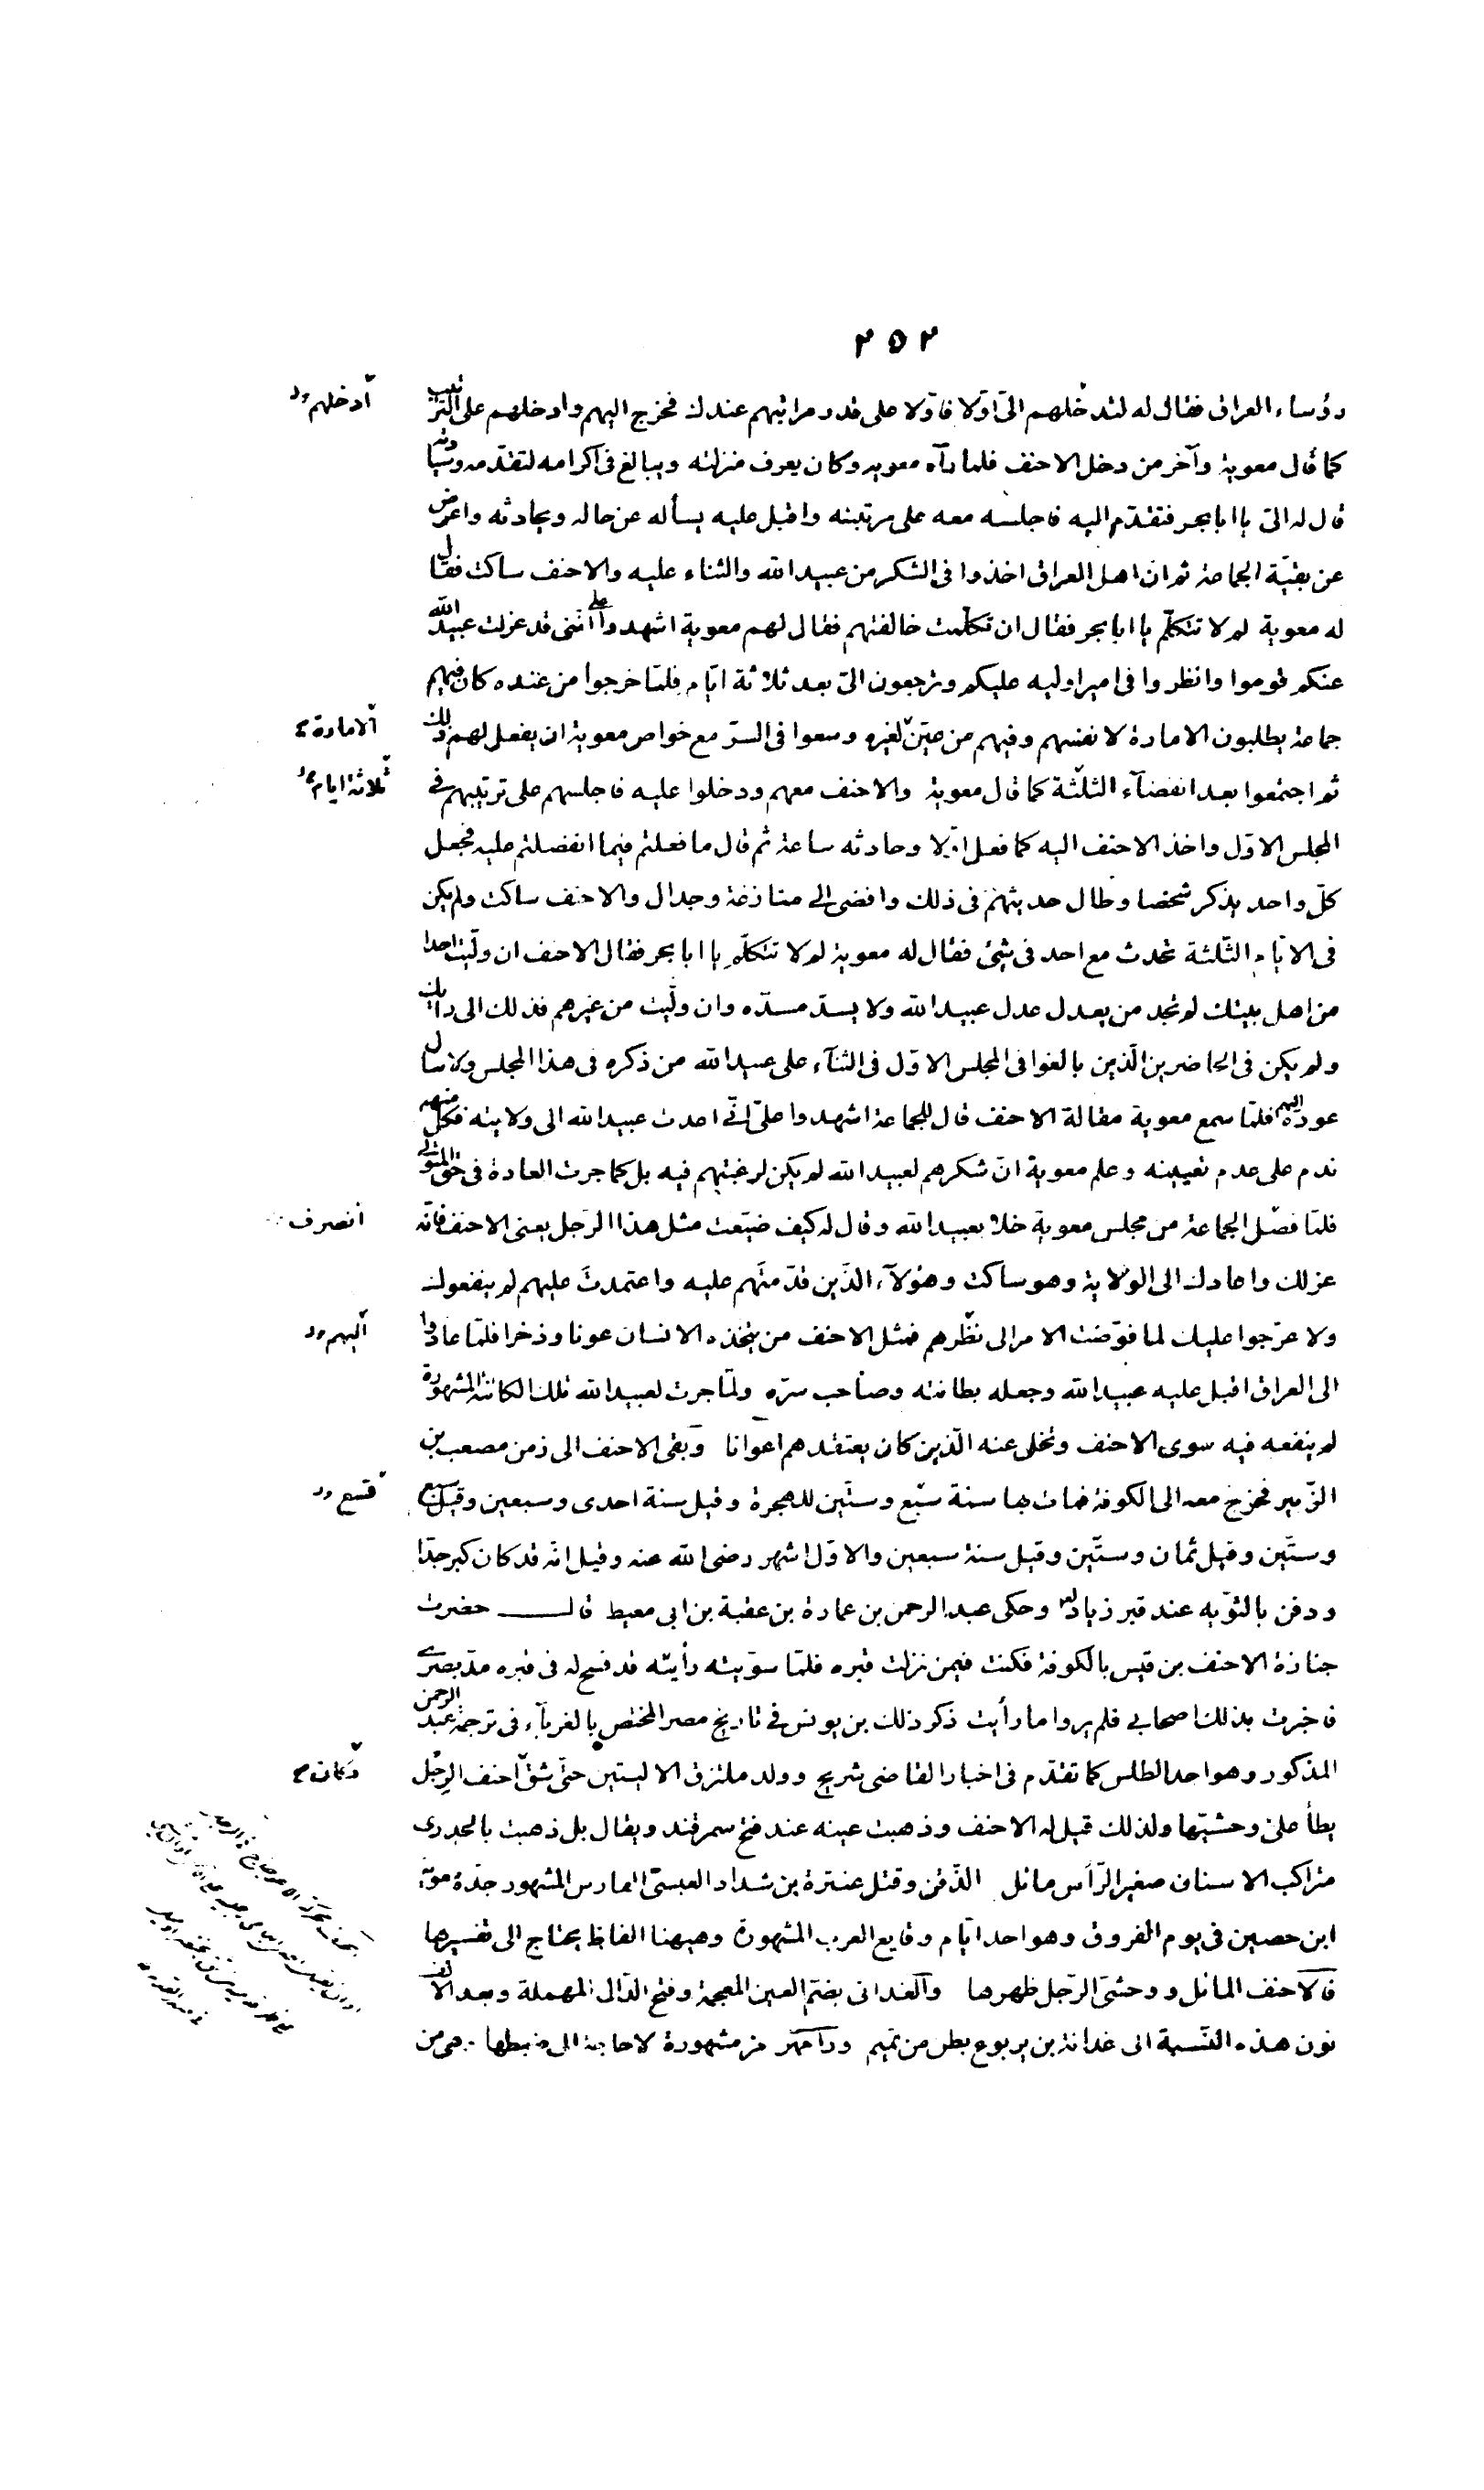 ٢٥٢
رؤساء العراق فقال له لتدخلهم الىّ اوّلا فاوّلا على قدر مراتبهم عندك فخرج اليهم وادخلهم على الترتيب
كما قال معوية وآخر من دخل الاحنف فلما رآه معوية وكان يعرف منزلته ويبالغ فى اكرامه لتقدّمه وسيادته
قال له الىّ يا ابا بحر فتقدّم اليه فاجلسه معه على مرتبته واقبل عليه يسأله عن حاله ويحادثه واعرض
عن بقيّة الجماعة ثم ان اهل العراق اخذوا فى الشكر من عبيد الله والثناء عليه والاحنف ساكت فقال
له معوية لم لا تتكلّم يا ابا بحر فقال ان تكلّمت خالفتهم فقال لهم معوية اشهدوا علىّ اننى قد عزلت عبيد الله
عنكم قوموا وانظروا فى امير اوليه عليكم وترجعون الىّ بعد ثلاثة ايّام فلمّا خرجوا من عنده كان فيهم
جماعة يطلبون الامارة لانفسهم وفيهم من عيّن لغيره وسعوا فى السرّ مع خواص معوية ان يفعل لهم ذلك
ثم اجتمعوا بعد انقضآء الثلثة كما قال معوية والاحنف معهم ودخلوا عليه فاجلسهم على ترتيبهم فى
المجلس الاوّل واخذ الاحنف اليه كما فعل اوّلا وحادثه ساعة ثم قال ما فعلتم فيما انفصلتم عليه فجعل
كلّ واحد يذكر شخصا وطال حديثهم فى ذلك وافضى الى منازعة وجدال والاحنف ساكت ولم يكن
فى الايّام الثّلثة تحدث مع احد فى شئ فقال له معوية لم لا تتكلّم يا ابا بحر فقال الاحنف ان ولّيت احدا
من اهل بيتك لم تجد من يعدل عدل عبيد الله ولا يسدّ مسدّه وان ولّيت من غيرهم فذلك الى رايك
ولم يكن فى الحاضرين الّذين بالغوا فى المجلس الاوّل فى الثنآء على عبيد الله من ذكره فى هذا المجلس ولا سال
عوده اليهم فلمّا سمع معوية مقالة الاحنف قال للجماعة اشهدوا علىّ انّى اعدت عبيد الله الى ولايته فكل منهم
ندم على عدم تعيينه وعلم معوية انّ شكرهم لعبيد الله لم يكن لرغبتهم فيه بل كما جرت العادة فى حق المتولى
فلمّا فصّل الجماعة من مجلس معوية خلا بعبيد الله وقال له كيف ضيّعت مثل هذا الرّجل يعنى الاحنف فانّه
عزلك واعادك الى الولاية وهو ساكت وهؤلآء الذّين قدّمتهم عليه واعتمدت عليهم لم ينفعوك
ولا عرّجوا عليك لما فوّضت الامر الى نظرهم فمثل الاحنف من يتخذه الانسان عونا وذخرا فلمّا عادوا
الى العراق اقبل عليه عبيد الله وجعله بطانته وصاحب سرّه ولمّا جرت لعبيد الله تلك الكائنة المشهورة
لم ينفعه فيه سوى الاحنف وتخلى عنه الّذين كان يعتقدهم اعوانا وبقى الاحنف الى زمن مصعب بن
الزّبير فخرج معه الى الكوفة فمات بها سنة سبع وستّين للهجرة وقيل سنة احدى وسبعين وقيل سبع
وستّين وقيل ثمان وستّين وقيل سنة سبعين والاوّل اشهر رضى الله عنه وقيل انّه قد كان كبر جدّا
ودفن بالثّويه عند قبر زياد وحكى عبد الرحمن بن عمارة بن عقبة بن ابى معيط قال حضرت
جنازة الاحنف بن قيس بالكوفة فكنت فيمن نزلت قبره فلمّا سوّيته رأيته قد فسح له فى قبره مدّ بصرى
فاخبرت بذلك اصحابى فلم يروا ما رأيت ذكر ذلك بن يونس فى تاريخ مصر المختص بالغربآء فى ترجمة عبد الرحمن
المذكور وهو احد الطلس كما تقدّم فى اخبار القاضى شريح وولد ملتزق الاليتين حتّى شقّ احنف الرّجل
يطأ على وحشيّها ولذلك قيل له الاحنف وذهبت عينه عند فتح سمرقند ويقال بل ذهبت بالجدرى
متراكب الاسنان صغير الرّاس مائل الذّقن وقتل عنترة بن شداد العبسىّ الفارس المشهور جدّه معوية
ابن حصين فى يوم الفروق وهو احد ايّام وقايع العرب المشهورة وهيهنا الفاظ يحتاج الى تفسيرها
فالاحنف المائل ووحشىّ الرّجل ظهرها والغدانى بضمّ الغين المعجمة وفتح الدّال المهملة وبعد الالف
نون هذه النّسبة الى غدانة بن يربوع بطن من تميم ورامهرمز مشهورة لا حاجة الى ضبطها وهى من
ادخلهم
الامارة
ثلاثة ايام
انصرف
اليهم
تسع
وكان